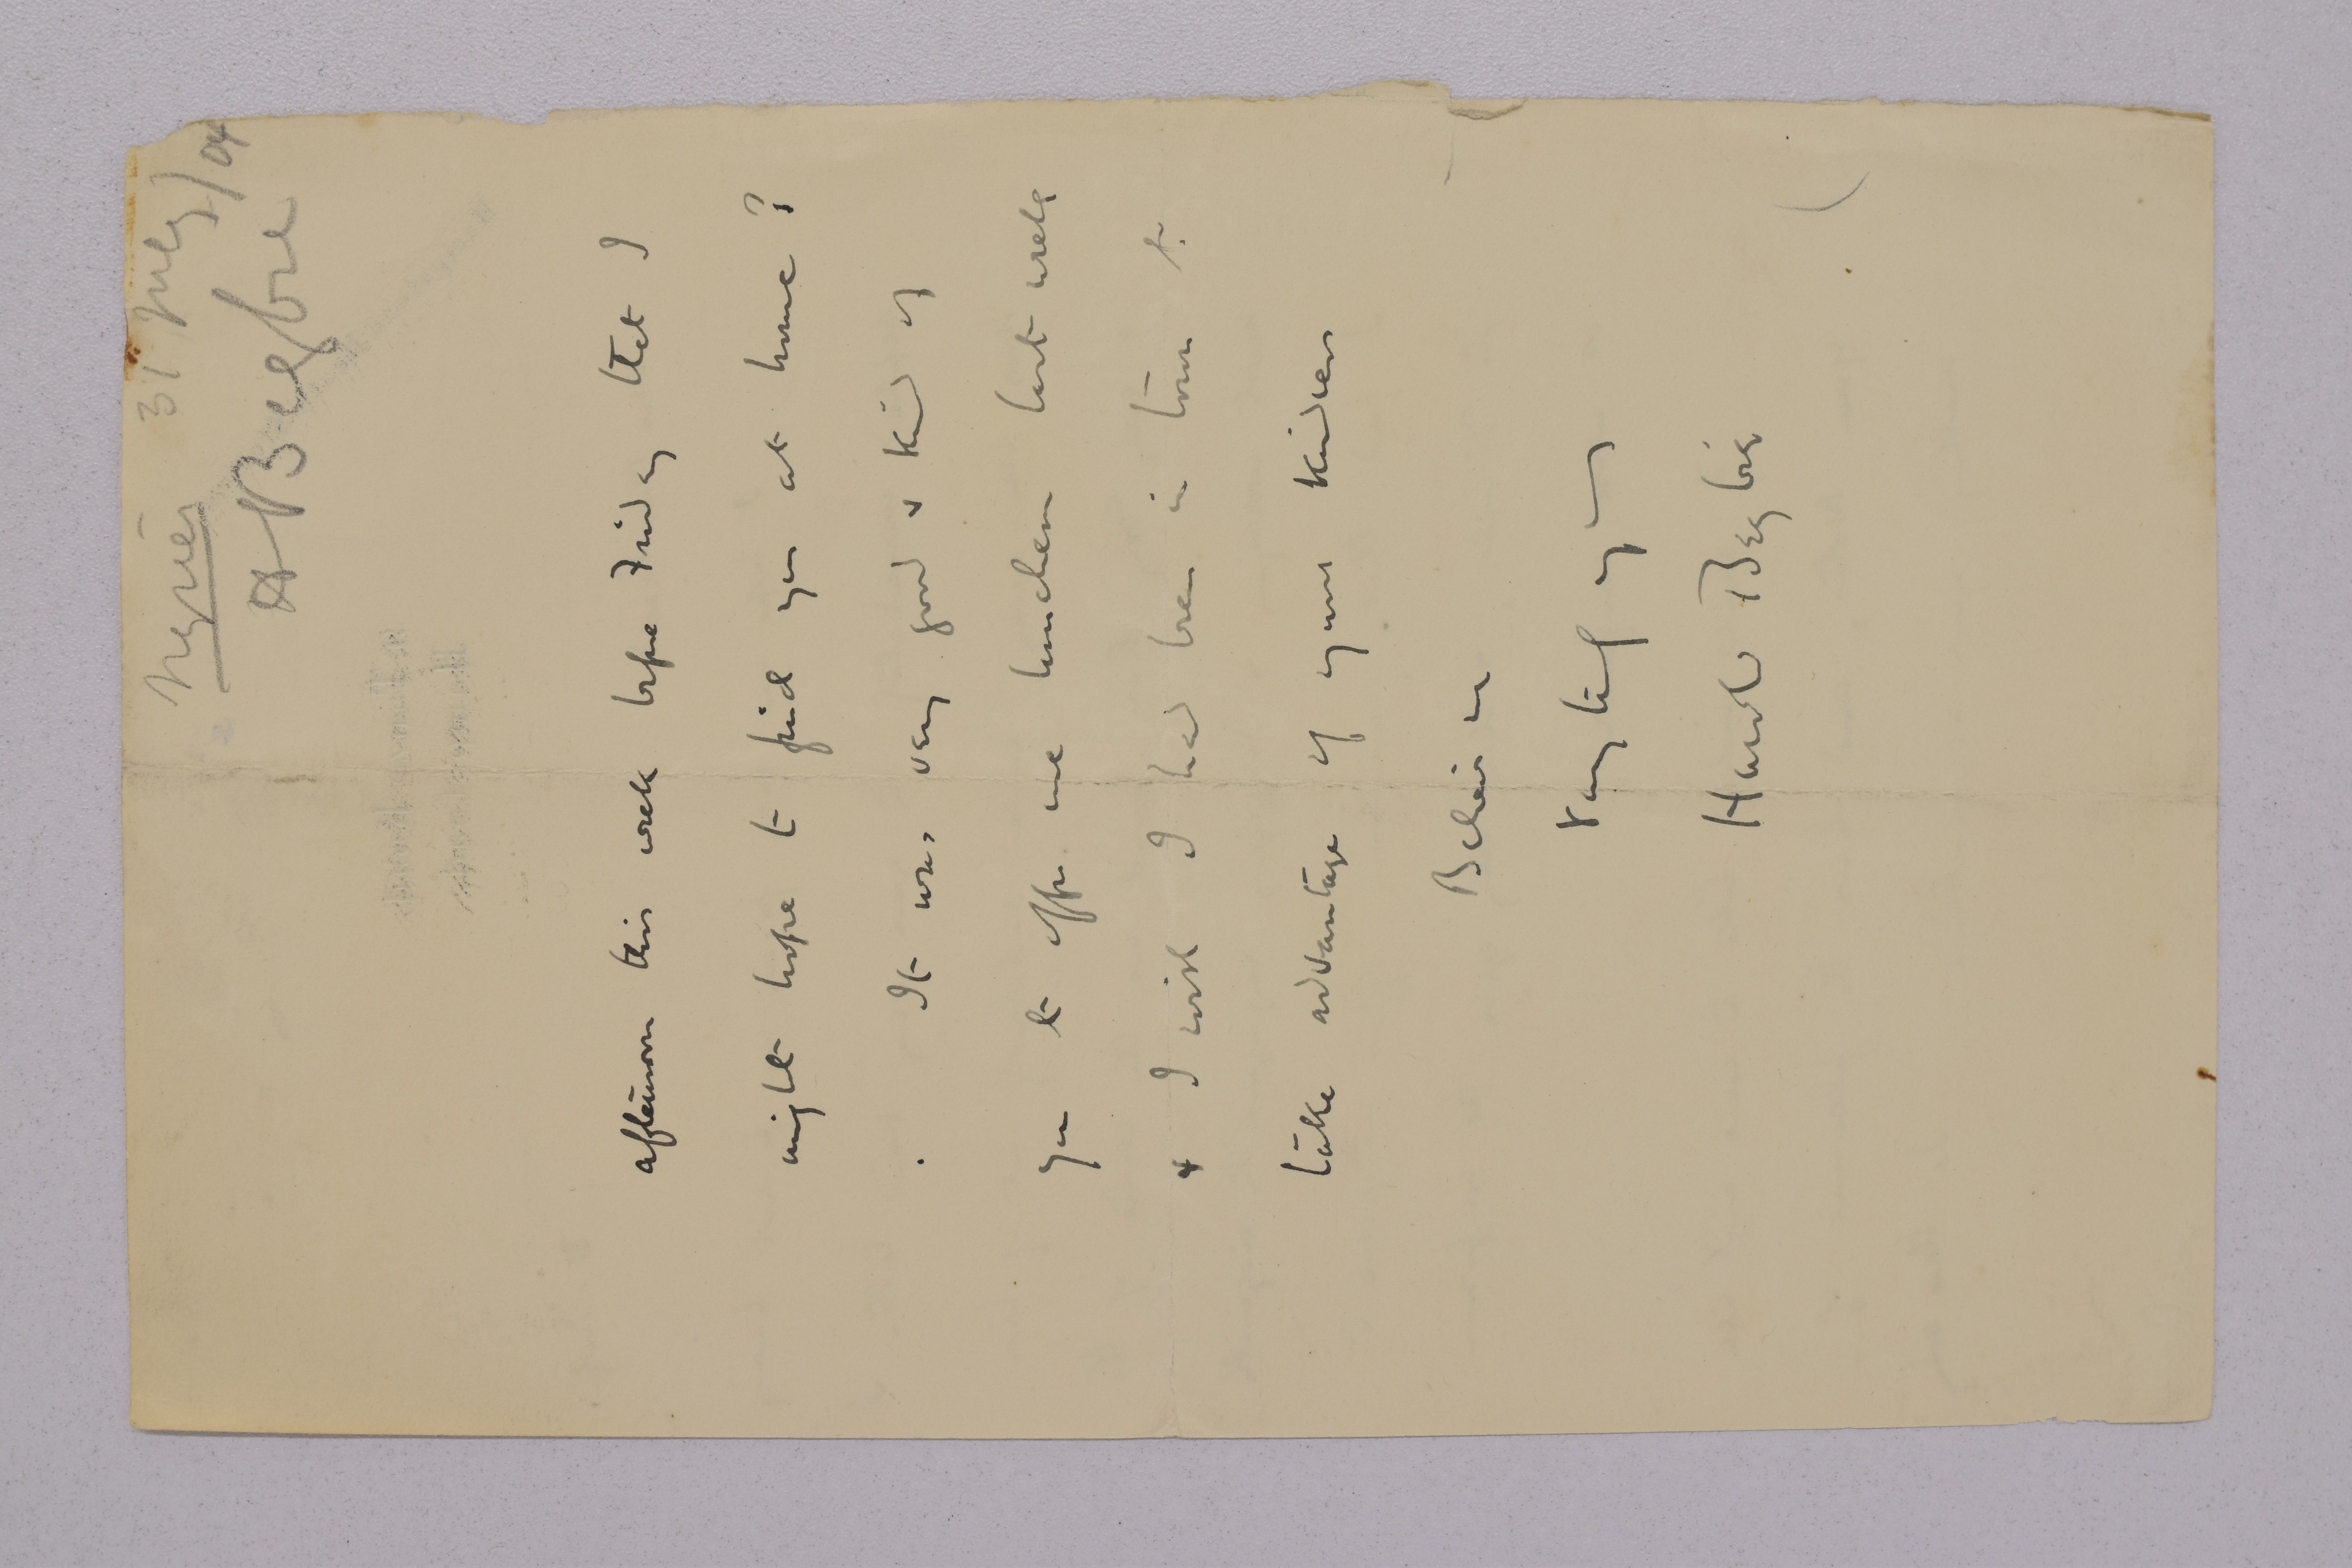 31 May/04
H Begbie
afternoon this week before Friday that I
might hope to find you at home?
It was very good & kind of
you to offer me luncheon last week
& I wish I had been in town to
take advantage of your kindness
Believe me
Harold Begbie